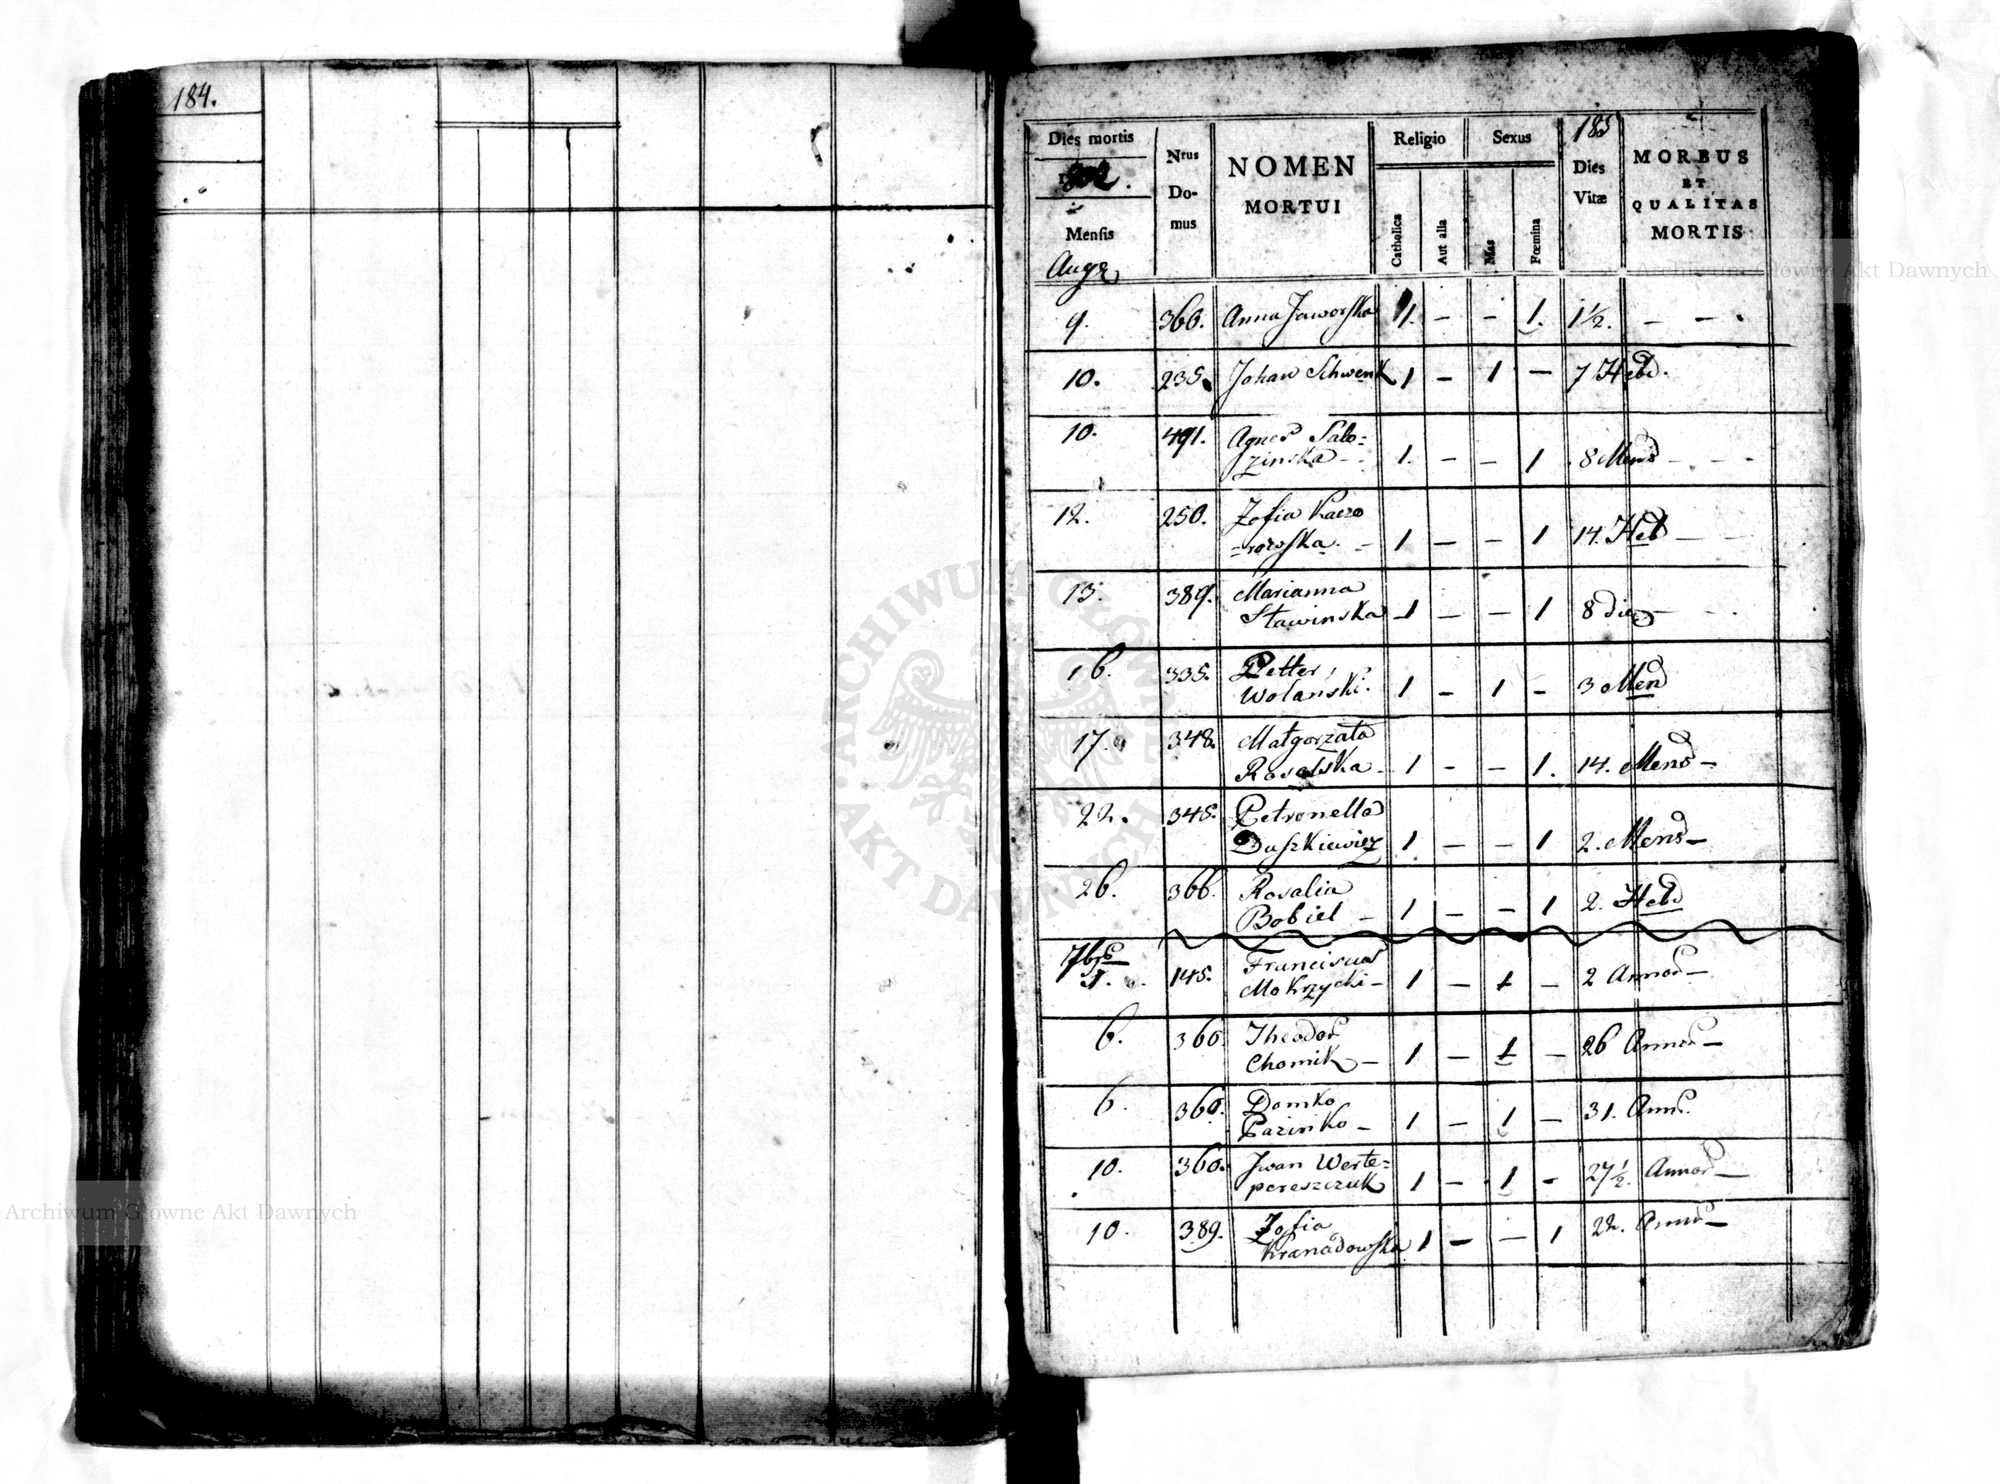 184.
185
Dies mortis
802.
Mensis
Aug
Nrus
Do-
mus
NOMEN
MORTUI
Religio
Catholica
Aut alia
Sexus
Mas
Fœmina
Dies
Vitæ
MORBUS
ET
QUALITAS
MORTIS
9. 366. Anna Jaworska 1. – – 1. 1½. – – .
10. 235. Johan Schwenk 1 – 1 – 7 Hebd.
10. 491. Agnes Salo=
zinska – 1. – – 1 8 Mens – – –
12. 250. Zofia Kaczo
=rowska. – 1 – – 1 14. Heb – –
13. 389. Marianna
Stawinska 1 – – 1 8 dies – – .
16. 335. Petter
Wolański. 1 – 1 – 3 Men
17. 348. Małgorzata
Rosalska – 1 – – 1. 14. Mens –
22. 345. Petronella
Duszkiewicz 1 – – 1 2. Mens –
26. 366. Rosalia
Bobiel – 1 – – 1 2. Hebd
7bris
1. 145. Franciscus
Mokrzycki – 1 – 1 – 2 Annor –
6. 366. Theodor
Chomik – 1 – 1 – 26 Annor –
6. 366. Domko
Parinko – 1 – 1 – 31. Ann.
10. 366. Jwan Werte=
pereszczuk 1 – 1 – 27½. Annor –
10. 389. Zofia
Kranadowska 1 – – 1 22. Annor –
ARCHIWUM GŁÓWNE
AKT DAWNYCH
Archiwum Główne Akt Dawnych
Archiwum Główne Akt Dawnych